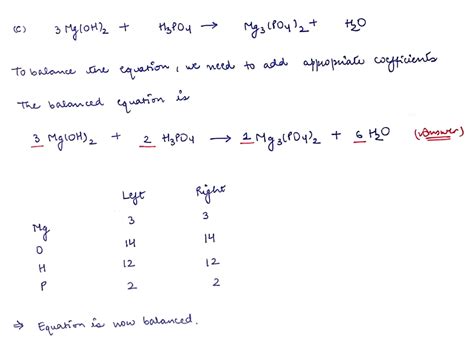 (c) 3 Mg(OH)₂ + H₃PO₄ → Mg₃(PO₄)₂ + H₂O
To balance the equation, we need to add appropriate coefficients
The balanced equation is
3 Mg(OH)₂ + 2 H₃PO₄ → 1 Mg₃(PO₄)₂ + 6 H₂O (Answer)
Left Right
Mg 3 3
O 14 14
H 12 12
P 2 2
⇒ Equation is now balanced.